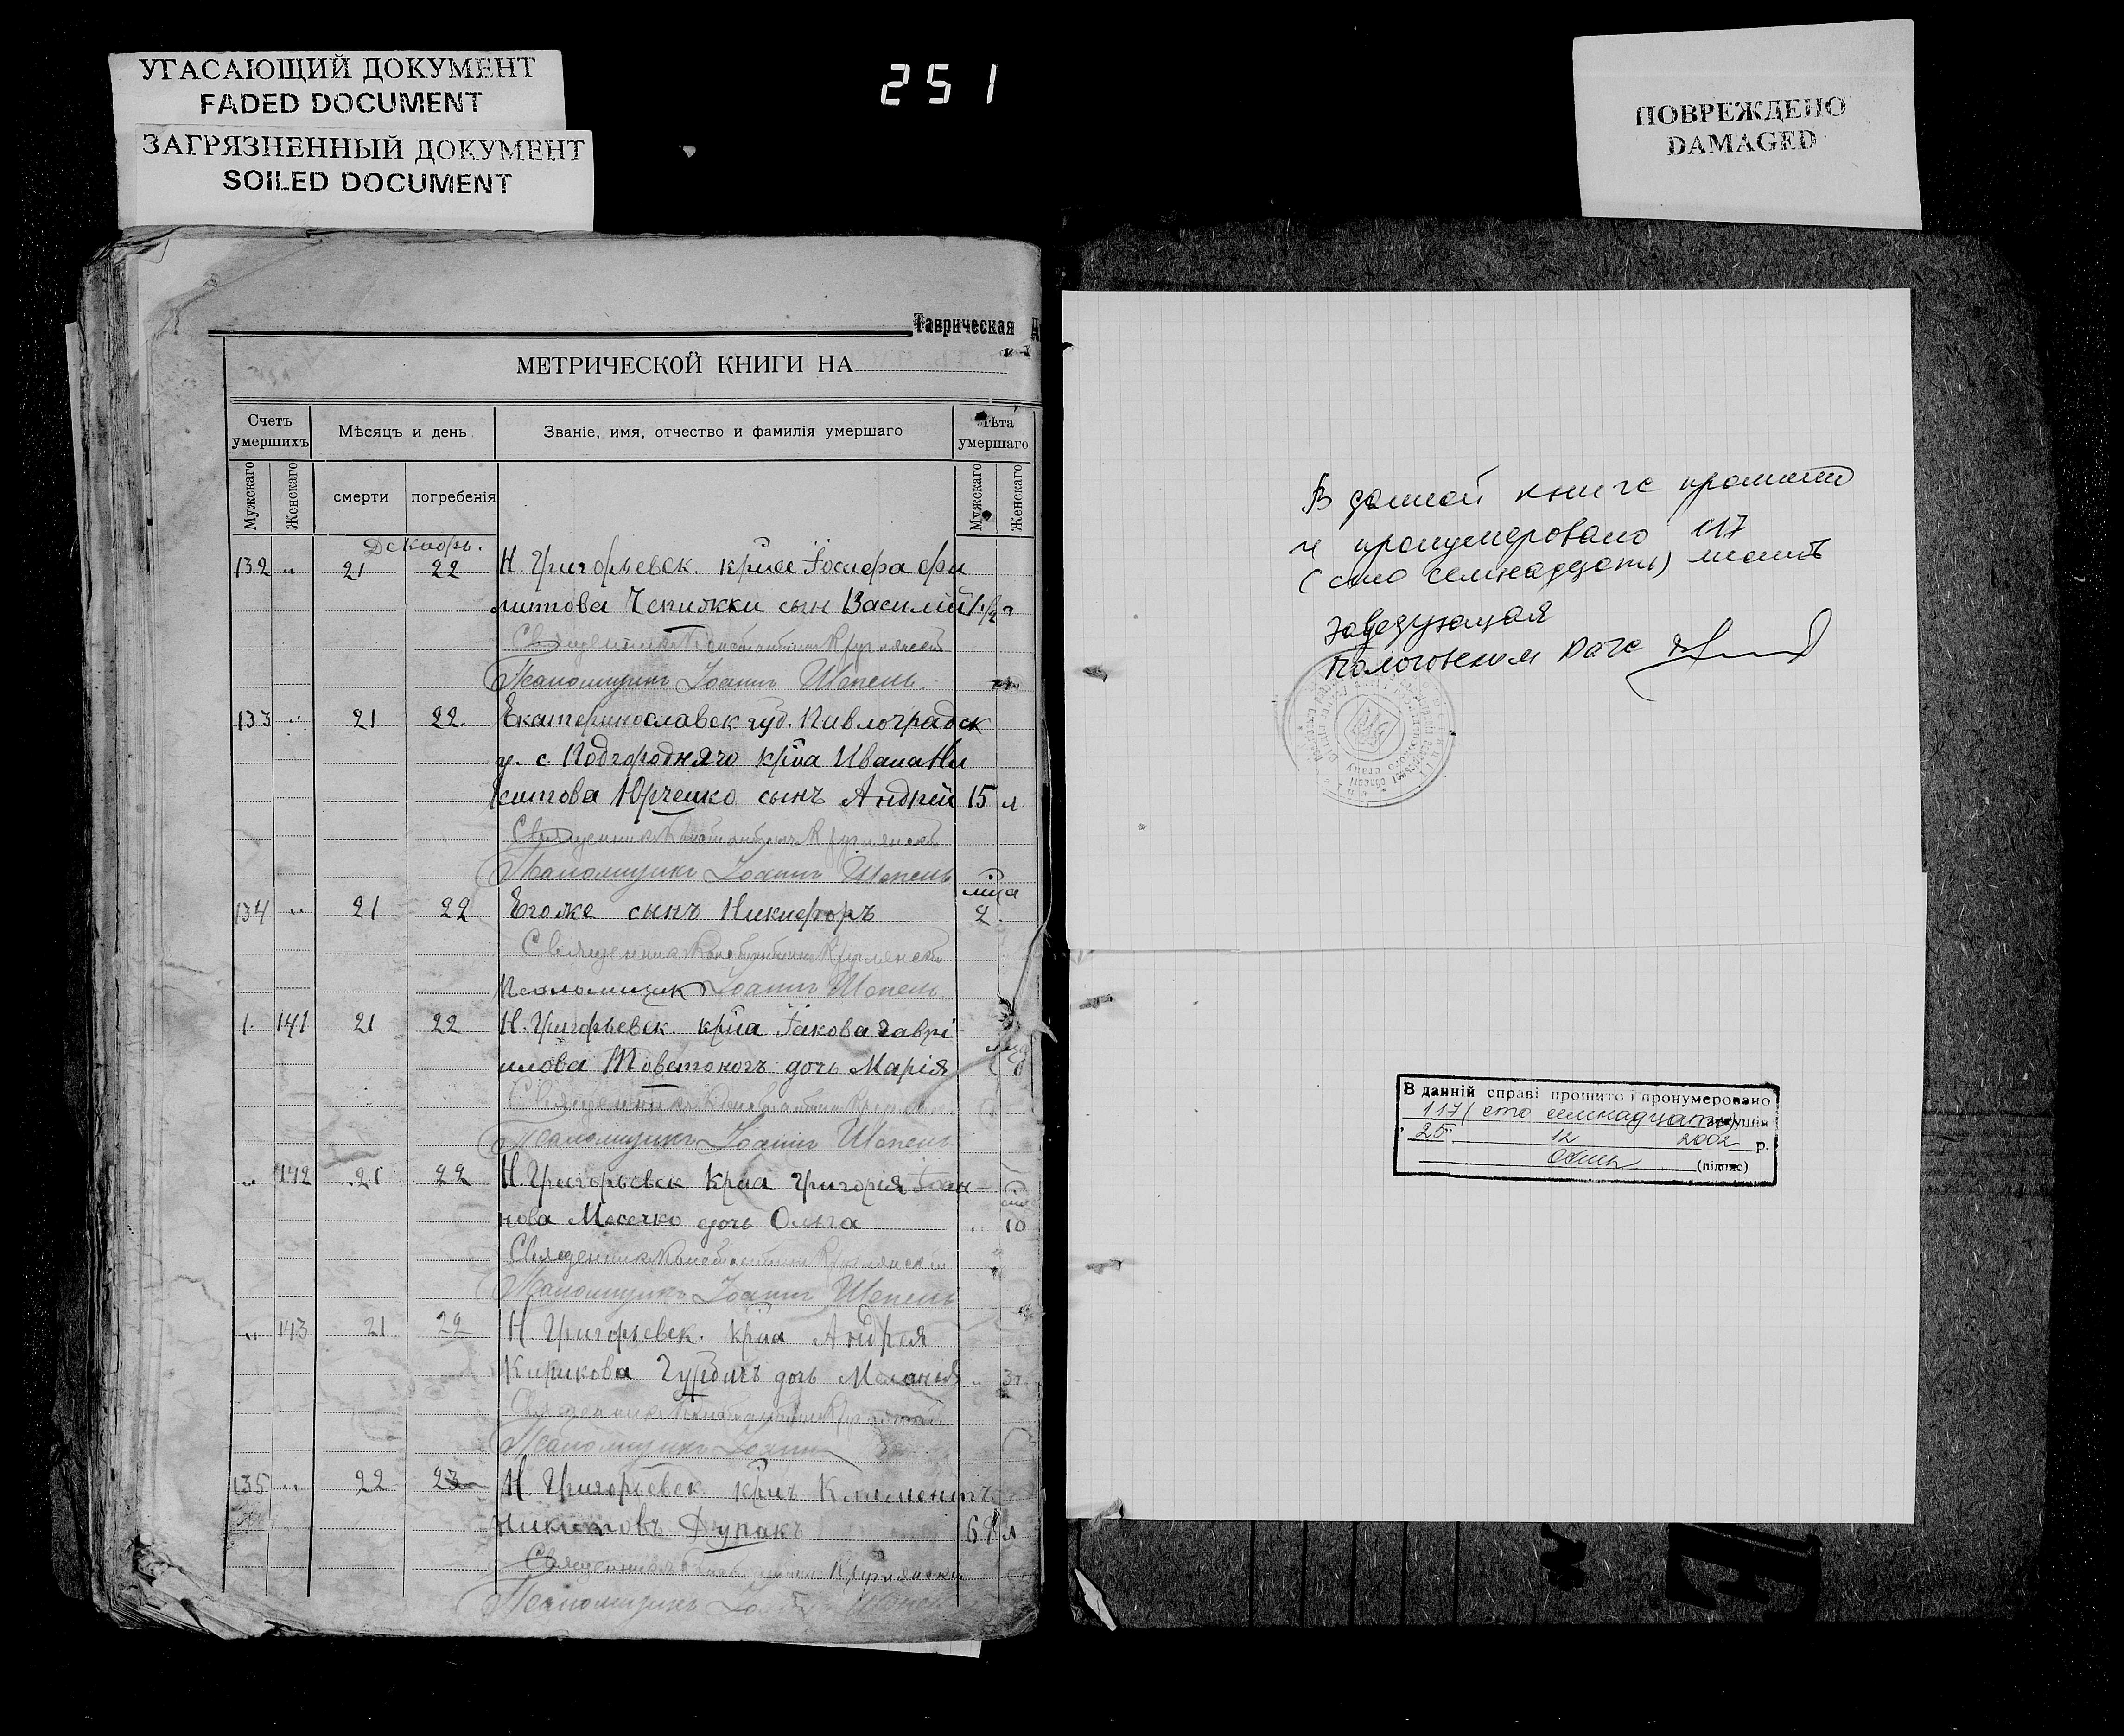 УГАСАЮЩИЙ ДОКУМЕНТ
FADED DOCUMENT
ЗАГРЯЗНЕННЫЙ ДОКУМЕНТ
SOILED DOCUMENT
251
ПОВРЕЖДЕНО
DAMAGED
Таврическая
МЕТРИЧЕСКОЙ КНИГИ НА
Счетъ умершихъ
Мѣсяцъ и день
Званіе, имя, отчество и фамилія умершаго
Лѣта умершаго
Мужскаго
Женскаго
смерти
погребенія
Мужскаго
Женскаго
Декабрь.
132 " 21 22 Н. Григорьевск. крна Іосифа Фи
липова Чепижки сын Василій 1 1/2 г
Священникъ Константинъ Круглянскій
Псаломщикъ Іоаннъ Шепель
133 " 21 22. Екатеринославск губ. Павлоградск
у. с. Подгородняго крна Ивана Ни
китова Юрченко сынъ Андрей 15 л
Священникъ Константинъ Круглянскій
Псаломщикъ Іоаннъ Шепель
мца
134 " 21 22 Егоже сынъ Никифоръ 2
Священникъ Константинъ Круглянскій
Псаломщикъ Іоаннъ Шепель
141 21 22 Н. Григорьевск. крна Іакова Гаврі
илова Товстоногъ дочь Марія
Священникъ Константинъ
Псаломщикъ Іоаннъ Шепель
" 142 21 22 Н. Григорьевск. крна Григорія Іоан
нова Месечко дочь Ольга " 10
Священникъ Константинъ Круглянскій
Псаломщикъ Іоаннъ Шепель
" 143 21 22 Н. Григорьевск. крна Андрея
Кирикова дочь Меланія " 3 г
Священникъ Константинъ Круглянскій
Псаломщикъ Іоаннъ
135 " 22 23 Н. Григорьевск. крнъ Климентъ
Никитовъ Дупакъ 68 л
Священникъ Круглянскій
Псаломщикъ Шепель
В данной книге прошито
и пронумеровано 117
(сто семнадцать) листов
заведующая
Пологовским рагс
В данній справі прошито і пронумеровано
117 (сто семнадцать) аркушів
25 12 2002 р.
(підпис)